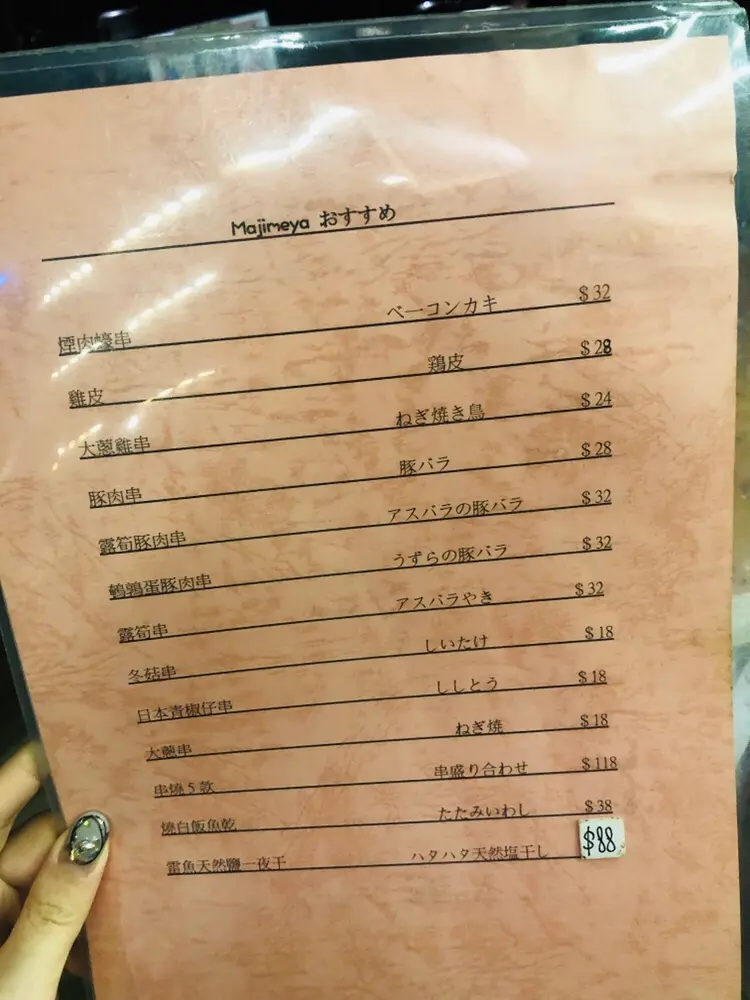 Majimeya おすすめ
煙肉蠔串 ベーコンカキ $32
雞皮 鶏皮 $28
大蔥雞串 ねぎ焼き鳥 $24
豚肉串 豚バラ $28
露筍豚肉串 アスパラの豚バラ $32
鵪鶉蛋豚肉串 うずらの豚バラ $32
露筍串 アスパラやき $32
冬菇串 しいたけ $18
日本青椒仔串 ししとう $18
大蔥串 ねぎ焼 $18
串燒5款 串盛り合わせ $118
燒白飯魚乾 たたみいわし $38
雷魚天然鹽一夜干 ハタハタ天然塩干し $88